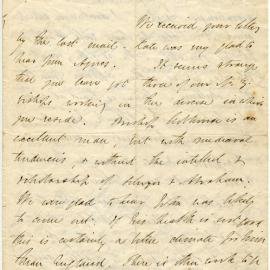 We received your letter
by the last mail. Kate was very glad to
hear from Agnes. It seems strange
that you have got three of our N. Z.
Bishops working in the diocese in which
you reside. Bishop Hobhouse is an
excellent man but with mediaeval
tendencies, & without the intellect &
scholarship of Selwyn & Abraham.
We were glad to hear John was likely
to come out. If his health is not good
this is certainly a better climate for him
than England. There is other work to be